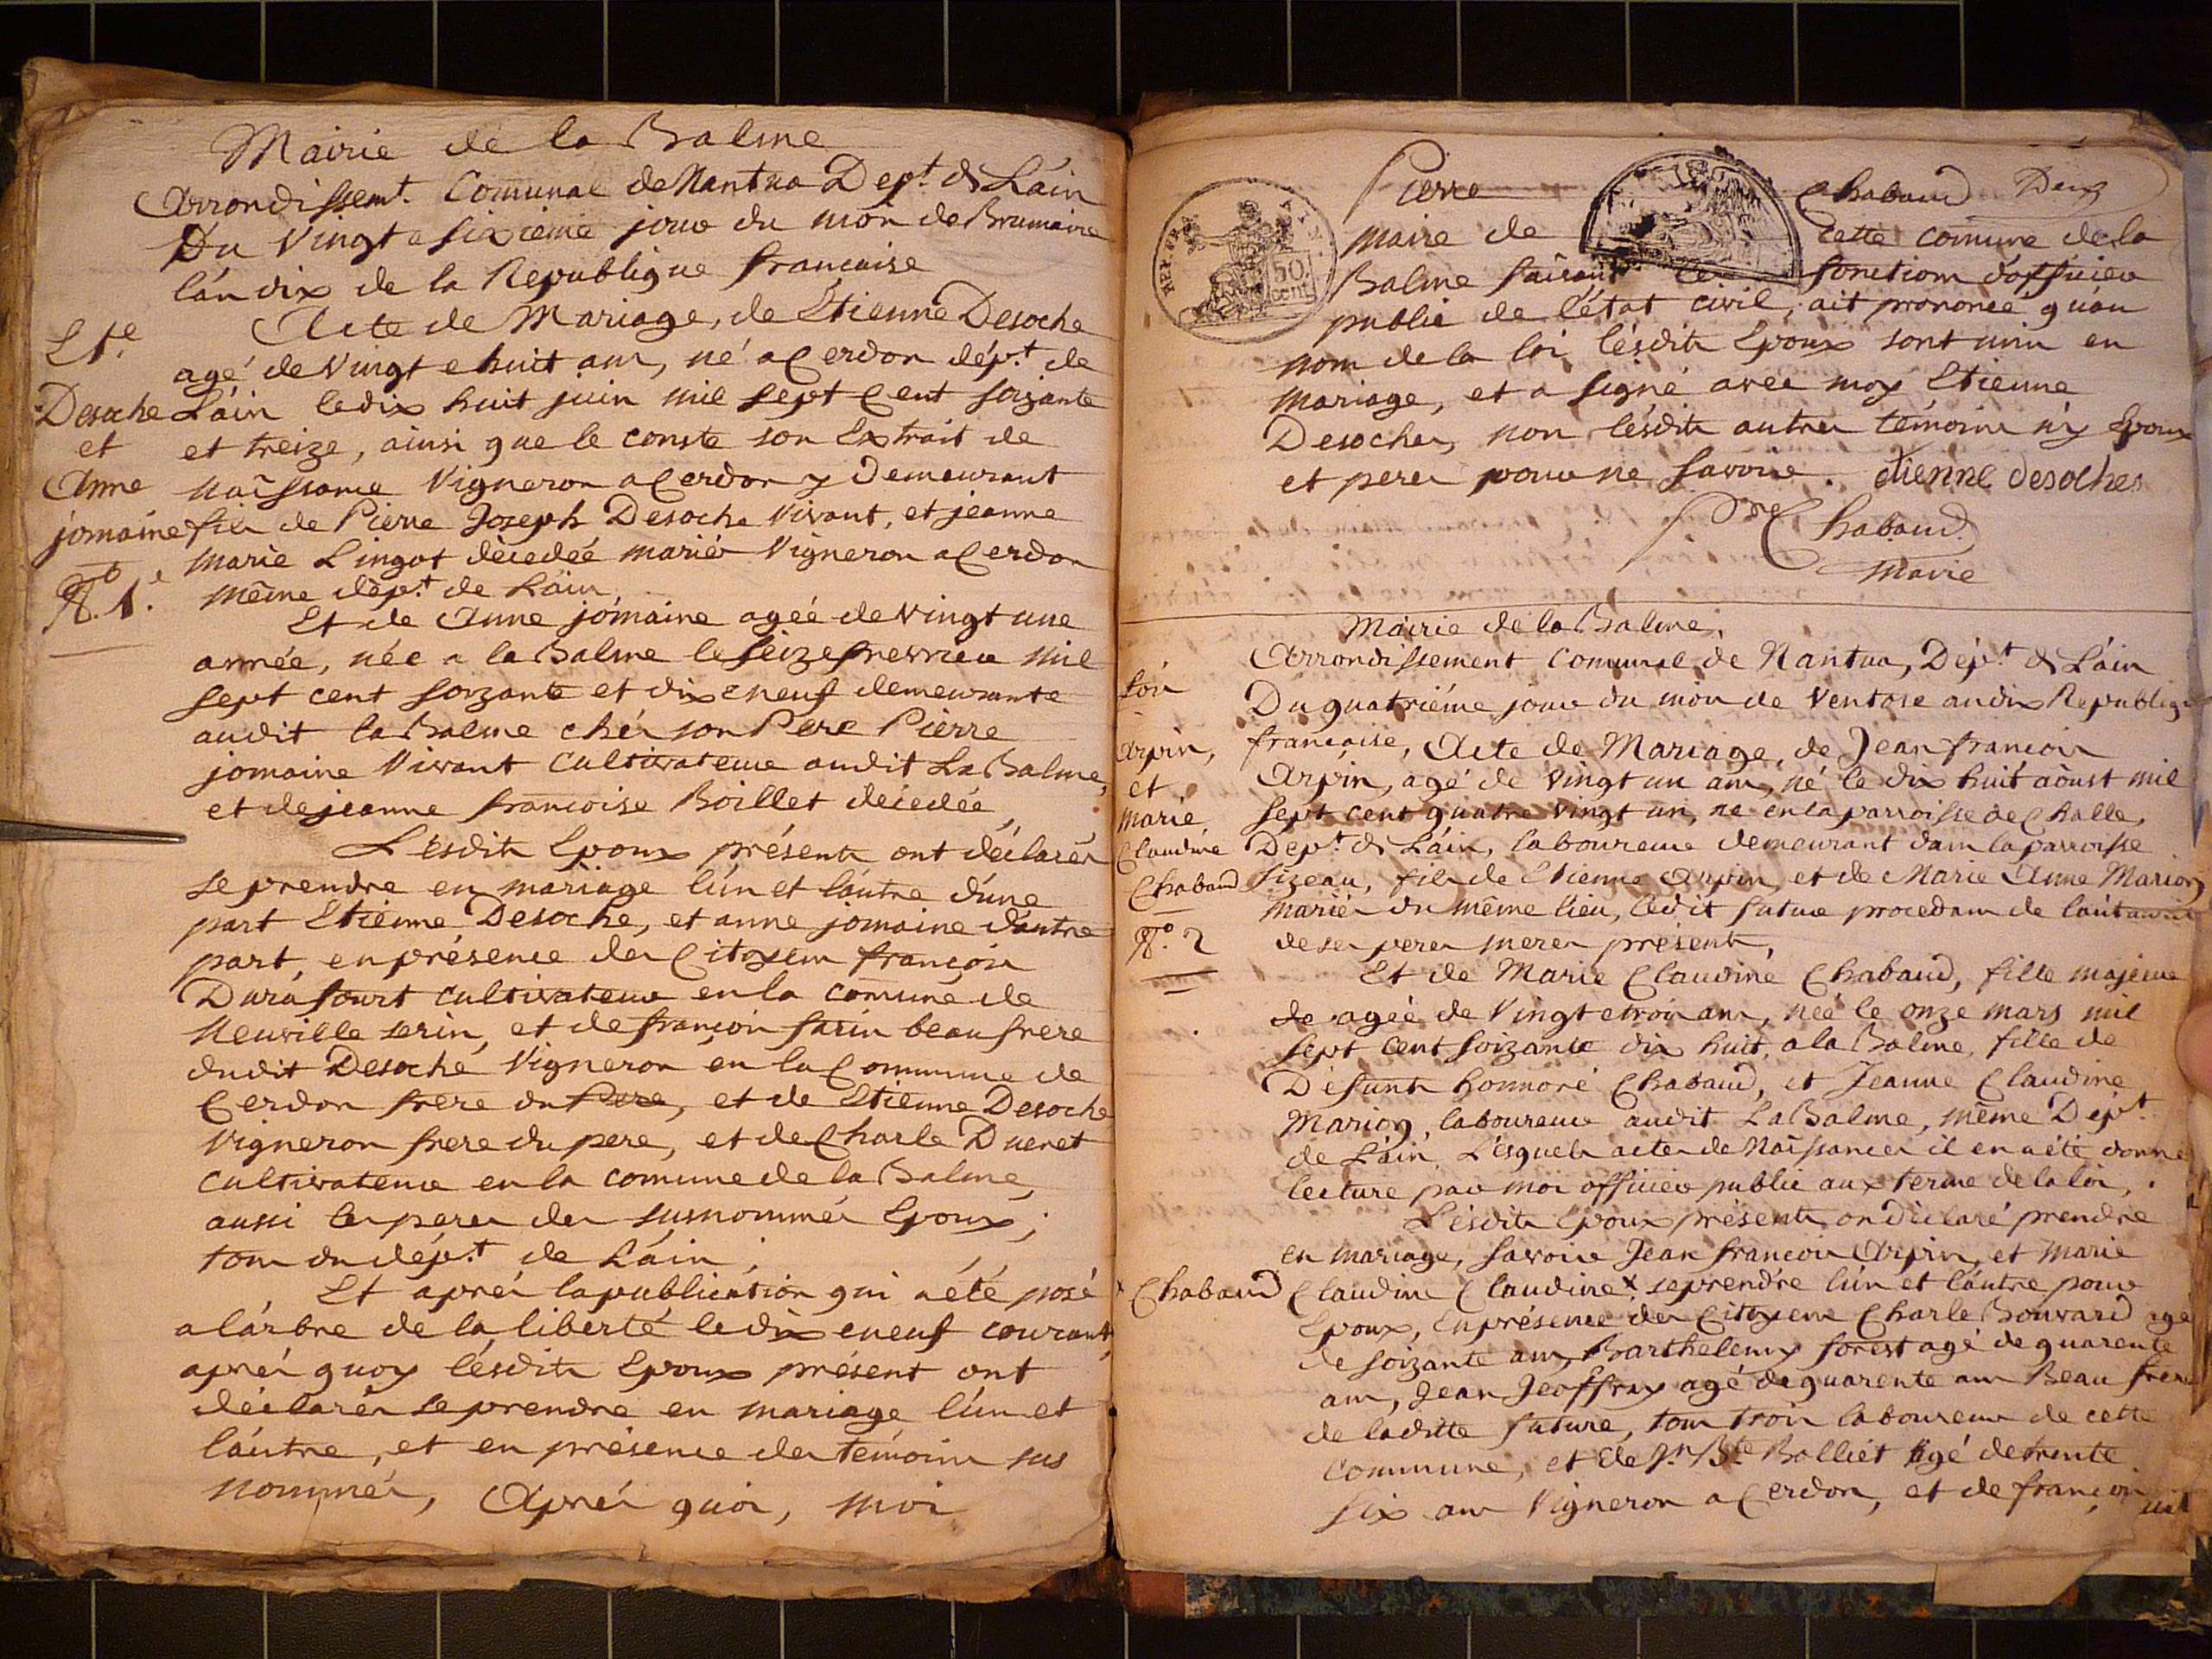 Mairie de la Balme
Arrondissemt. Comunal de Nantua Dept. de L'ain
Du Vingt e sixieme jour du mois de Brumaire
l'an dix de la Republique francaise
Acte de Mariage, de Étienne Desoche
agé de Vingt e huit ans, né a Cerdon dépt. de
L'ain le dix huit juin mil sept Cent soizante
et treize, ainsi que le conste son Extrait de
naissance Vigneron a Cerdon y Demeurant
fils de Pierre Joseph Desoche Vivant, et jeanne
marie Lingot décedée mariés Vigneron a Cerdon
même dépt. de L'ain
Ete.
Desoche
et
Anne
jomaine
No. 1.
Et de Anne jomaine ageé de Vingt une
année, née a la Balme le seize fevrieu mil
sept cent soizante et dix e neuf demeurante
audit la Balme chés son Pere Pierre
jomaine Vivant Cultivateur audit La Balme,
et de jeanne francoise Boillet décedée,
L'ésdits Epoux présents ont déclarés
se prendre en mariage l'ún et l'aútre d'une
part Etienne Desoche, et anne jomaine d'autre
part, en présence des Citoyens francois
Durafourt cultivateur en la comune de
Neuville serin, et de francois sarin beau frere
dudit Desoche Vigneron en la Commune de
Cerdon frere du Pere, et de Etienne Desoche
Vigneron frere du pere, et de Charle Dueret
Cultivateur en la comune de la Balme,
aussi les peres des susnommés Epoux;
tous du dépt. de L'ain;
Et aprés la publication qui a été posé
a l'arbre de la liberté le dix e neuf courant,
aprés quoy l'ésdits Epoux présent ont
déclarés se prendre en mariage l'ún et
l'aútre, et en présence des témoins sus
nommés, Aprés quoi, moi
Pierre Chabaud Deuz
maire de cette comune de la
Balme faisant les fonctions d'officieu
public de l'état civil, ait prononcé qu'au
nom de la loi lésdits Epoux sont unis en
mariage, et a signé avec moy Etienne
Desoches, non lésdits autres témoins n'y Epoux
et peres pour ne savoir. etienne desoches
Pre Chabaud
maire
REP. FRA.
50.
cent
Mairie de la Balme,
Arrondissement Comunal de Nantua, Dépt. de L'ain
Du quatriéme jour du mois de Ventose an dix Republiq
francaise, Acte de Mariage, de Jean francois
Arpin, agé de Vingt un ans, né le dix huit aoust mil
sept cent quatre vingt un, ne en la parroisse de Challe,
Dept. de L'ain, laboureur demeurant dans la parroisse
Sizeau, fils de Etienne Arpin, et de Marie Anne Marion
mariés du même lieu, ledit future procedans de l'autaurité
de ses peres meres présents,
Arpin,
et
Marie
Claudine
Chabaud
No. 2
Et de Marie Claudine Chabaud, fille majeure
de ageé de Vingt e trois ans, née le onze mars mil
sept Cent soizante dix huit, a la Balme, fille de
Défunts honnoré Chabaud, et Jeanne Claudine
Marion, laboureur audit La Balme, même Dépt.
de L'ain, L'ésquels actes de Naissances il en a été donné
lecture par moi officieu public aux terme de la loi,
L'ésdits Epoux présents on déclaré prendre
en mariage, savoir Jean francois Arpin, et Marie
x Chabaud
Claudine Claudine x se prendre l'ún et l'aútre pour
Epoux, en présence des Citoyens Charle Bouvard agé
de soizante ans, Barthelemy forest agé de quarente
ans, Jean Jeoffray agé de quarente ans Beau frere
de laditte future, tous trois laboureur de cette
Commune, et de Jn. Bte. Bolliet agé de trente
six ans Vigneron a Cerdon, et de francois